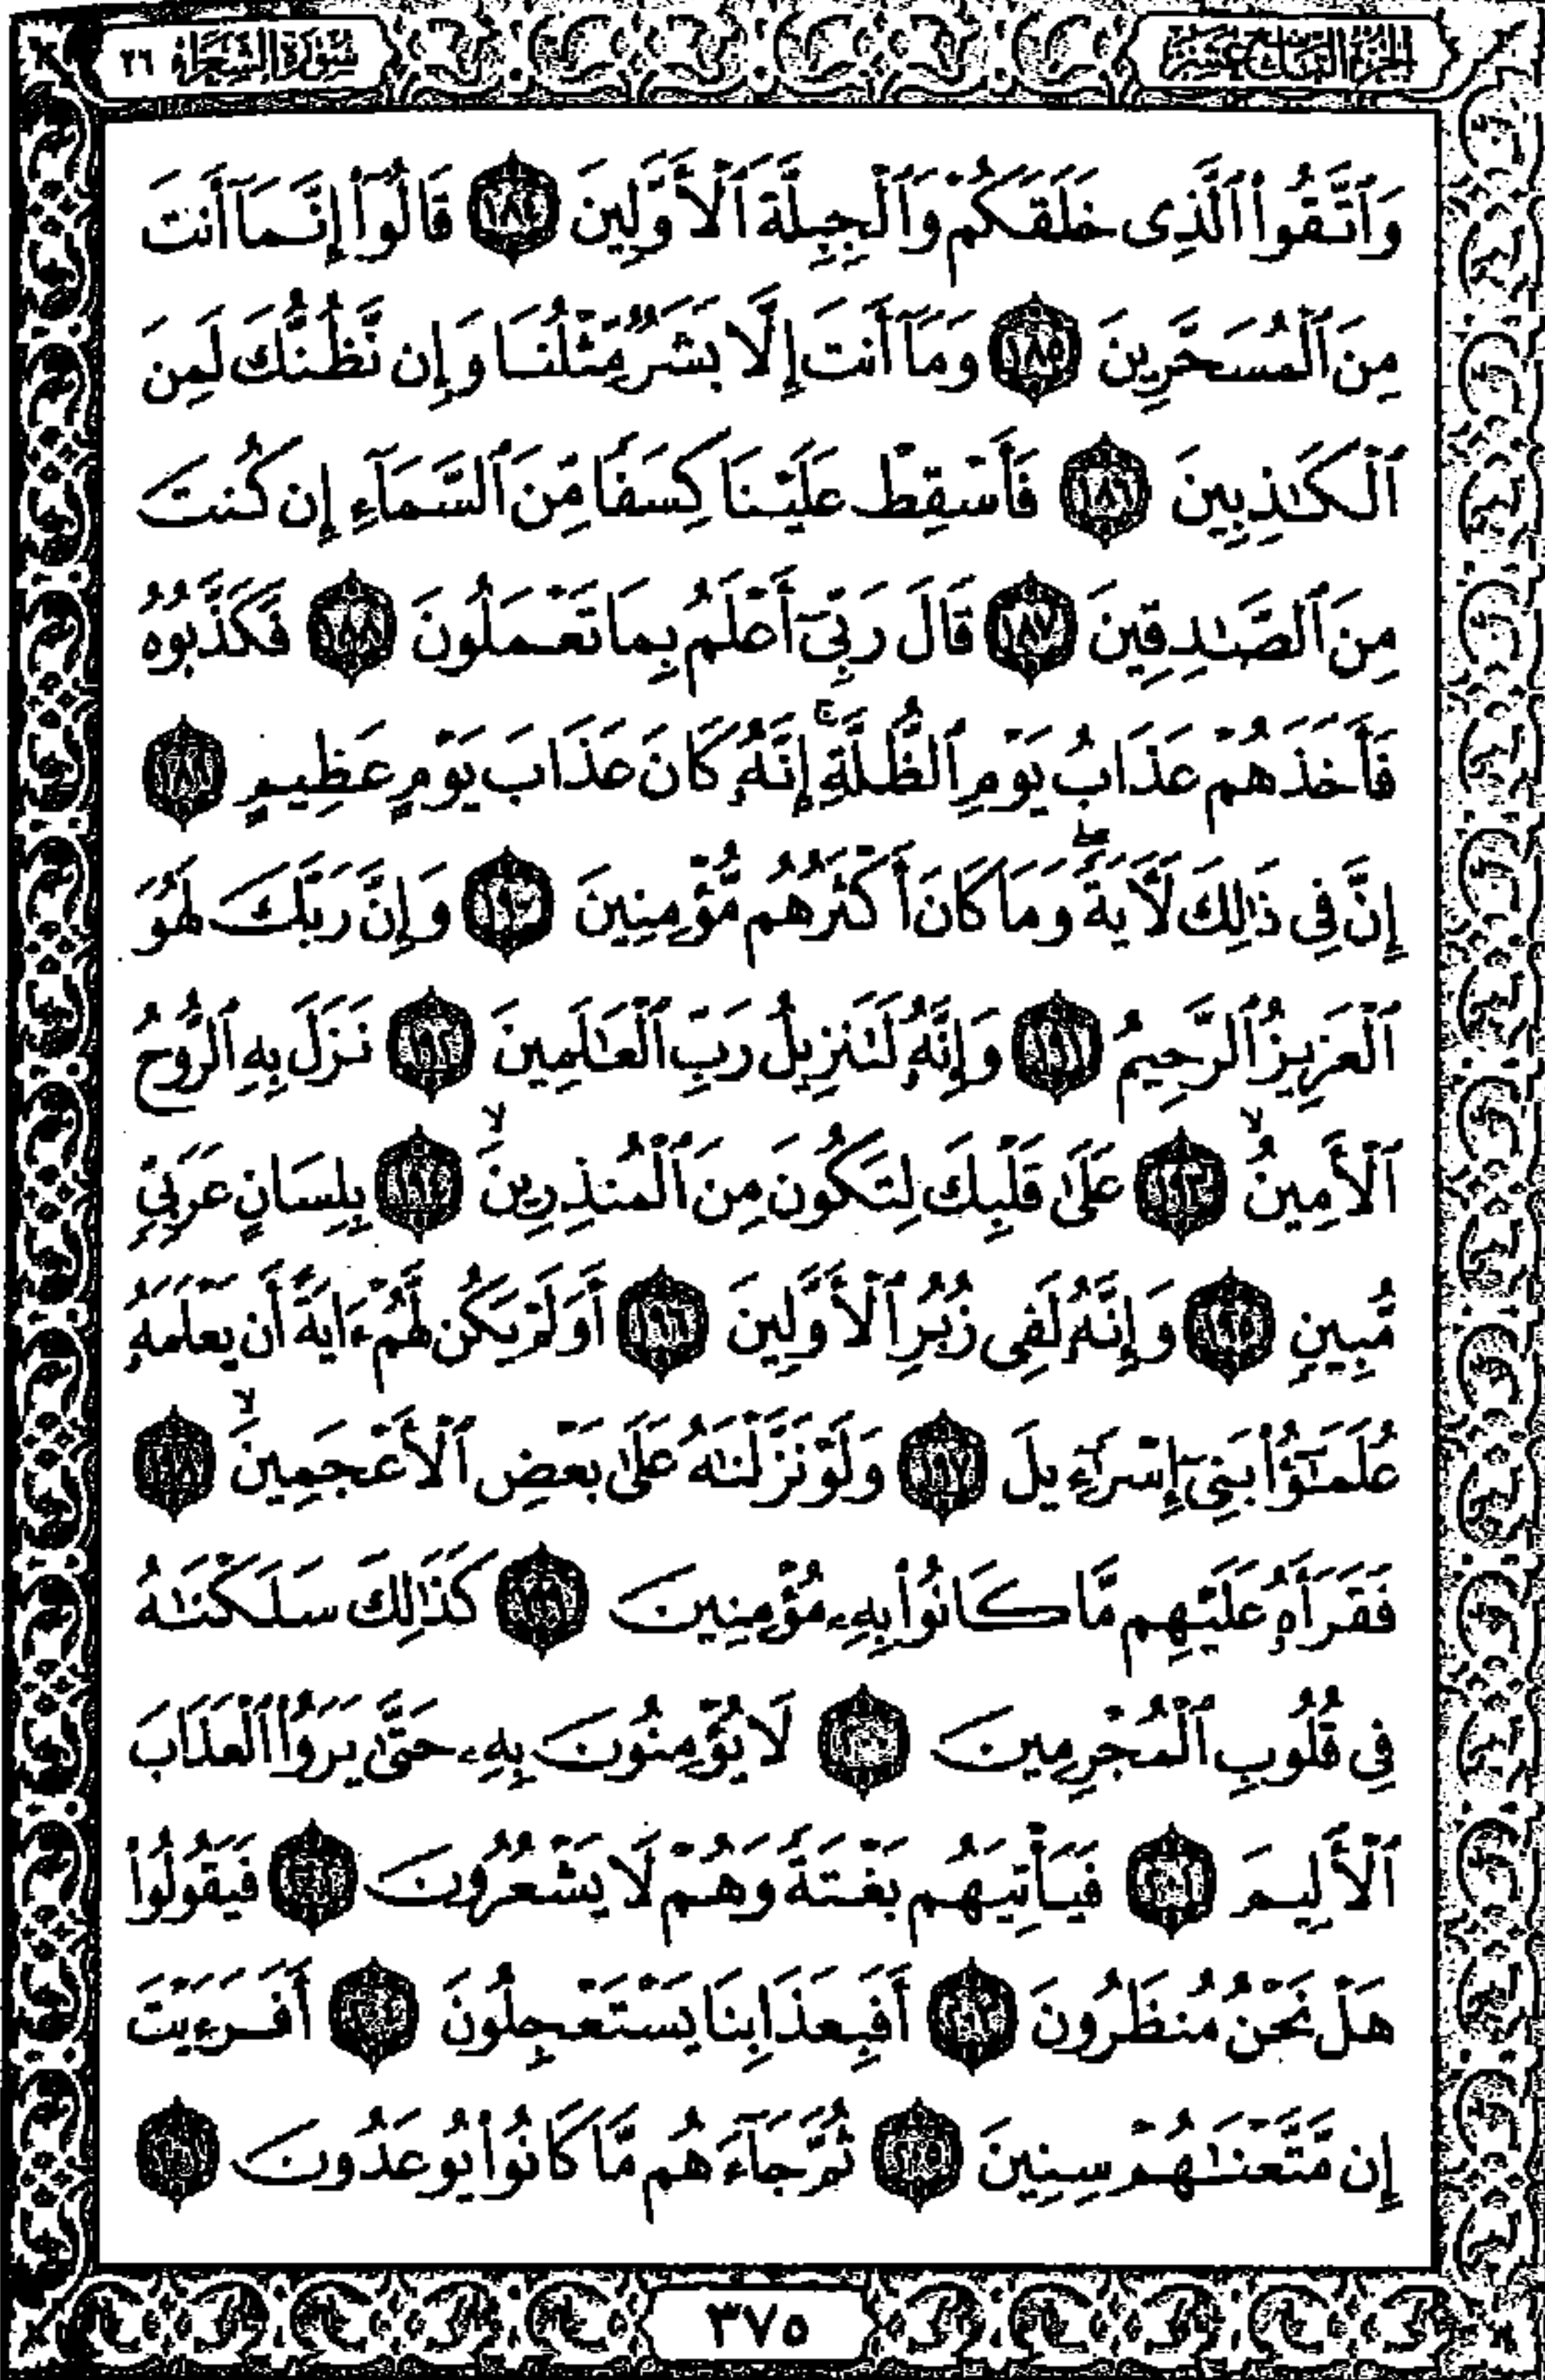 الجزء التاسع عشر
سورة الشعراء ٢٦
وَٱتَّقُوا۟ ٱلَّذِى خَلَقَكُمْ وَٱلْجِبِلَّةَ ٱلْأَوَّلِينَ ١٨٤ قَالُوٓا۟ إِنَّمَآ أَنتَ
مِنَ ٱلْمُسَحَّرِينَ ١٨٥ وَمَآ أَنتَ إِلَّا بَشَرٌ مِّثْلُنَا وَإِن نَّظُنُّكَ لَمِنَ
ٱلْكَٰذِبِينَ ١٨٦ فَأَسْقِطْ عَلَيْنَا كِسَفًا مِّنَ ٱلسَّمَآءِ إِن كُنتَ
مِنَ ٱلصَّٰدِقِينَ ١٨٧ قَالَ رَبِّىٓ أَعْلَمُ بِمَا تَعْمَلُونَ ١٨٨ فَكَذَّبُوهُ
فَأَخَذَهُمْ عَذَابُ يَوْمِ ٱلظُّلَّةِ ۚ إِنَّهُۥ كَانَ عَذَابَ يَوْمٍ عَظِيمٍ ١٨٩
إِنَّ فِى ذَٰلِكَ لَـَٔايَةً ۖ وَمَا كَانَ أَكْثَرُهُم مُّؤْمِنِينَ ١٩٠ وَإِنَّ رَبَّكَ لَهُوَ
ٱلْعَزِيزُ ٱلرَّحِيمُ ١٩١ وَإِنَّهُۥ لَتَنزِيلُ رَبِّ ٱلْعَٰلَمِينَ ١٩٢ نَزَلَ بِهِ ٱلرُّوحُ
ٱلْأَمِينُ ۙ ١٩٣ عَلَىٰ قَلْبِكَ لِتَكُونَ مِنَ ٱلْمُنذِرِينَ ۙ ١٩٤ بِلِسَانٍ عَرَبِىٍّ
مُّبِينٍ ١٩٥ وَإِنَّهُۥ لَفِى زُبُرِ ٱلْأَوَّلِينَ ١٩٦ أَوَلَمْ يَكُن لَّهُمْ ءَايَةً أَن يَعْلَمَهُۥ
عُلَمَٰٓؤُا۟ بَنِىٓ إِسْرَٰٓءِيلَ ١٩٧ وَلَوْ نَزَّلْنَٰهُ عَلَىٰ بَعْضِ ٱلْأَعْجَمِينَ ۙ ١٩٨
فَقَرَأَهُۥ عَلَيْهِم مَّا كَانُوا۟ بِهِۦ مُؤْمِنِينَ ١٩٩ كَذَٰلِكَ سَلَكْنَٰهُ
فِى قُلُوبِ ٱلْمُجْرِمِينَ ٢٠٠ لَا يُؤْمِنُونَ بِهِۦ حَتَّىٰ يَرَوُا۟ ٱلْعَذَابَ
ٱلْأَلِيمَ ٢٠١ فَيَأْتِيَهُم بَغْتَةً وَهُمْ لَا يَشْعُرُونَ ٢٠٢ فَيَقُولُوا۟
هَلْ نَحْنُ مُنظَرُونَ ٢٠٣ أَفَبِعَذَابِنَا يَسْتَعْجِلُونَ ٢٠٤ أَفَرَءَيْتَ
إِن مَّتَّعْنَٰهُمْ سِنِينَ ٢٠٥ ثُمَّ جَآءَهُم مَّا كَانُوا۟ يُوعَدُونَ ٢٠٦
٣٧٥